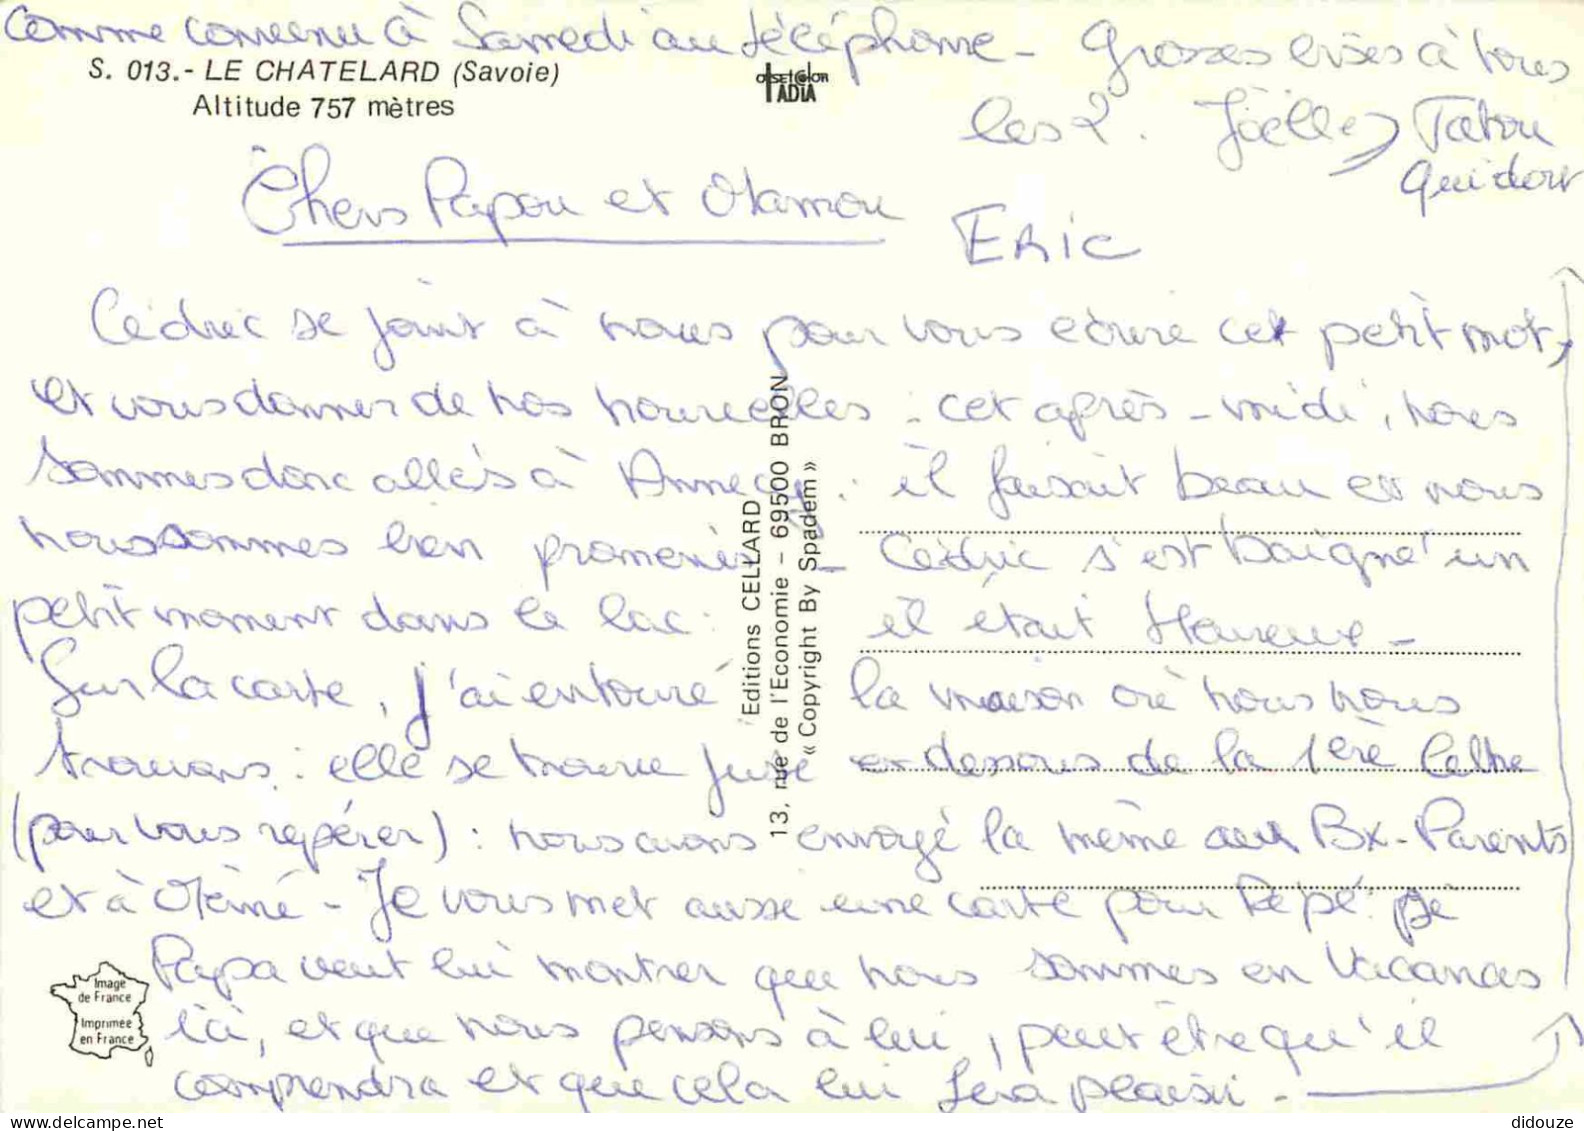 Comme convenu à Samedi au téléphone - Grosses bises à tous
les 2. Joëlle Tatou
qui dort
ERIC
S. 013.- LE CHATELARD (Savoie)
Altitude 757 mètres
OFFSET COLOR
IADIA
Chers Papou et Mamou
Cédric se joint à nous pour vous écrire cet petit mot,
et vous donner de nos nouvelles : cet après-midi, nous
sommes donc allés à Annecy : il faisait beau et nous
nous sommes bien promenés - Cédric s'est baigné un
petit moment dans le lac : il était Heureux -
Sur la carte, j'ai entouré la maison où nous nous
trouvons : elle se trouve juste en dessous de la 1ère lettre
(pour vous repérer) : nous avons envoyé la même aux Bx-Parents
et à Mémé - Je vous met aussi une carte pour Pépé : si
Papa veut lui montrer que nous sommes en Vacances
ici, et que nous pensons à lui, peut être qu'il
comprendra et que cela lui fera plaisir -
Editions CELLARD
13, rue de l'Economie - 69500 BRON
« Copyright By Spadem »
Image
de France
Imprimée
en France
didouze